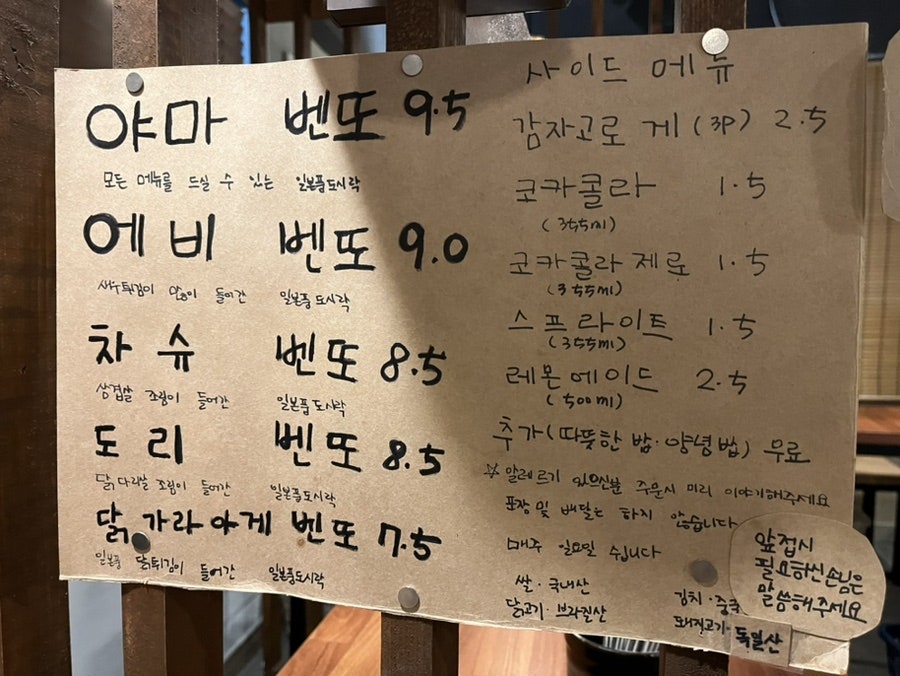 야마 벤또 9.5
모든 메뉴를 드실 수 있는 일본풍도시락
에비 벤또 9.0
새우튀김이 많이 들어간 일본풍도시락
차슈 벤또 8.5
삼겹살 조림이 들어간 일본풍도시락
도리 벤또 8.5
닭다리살 조림이 들어간 일본풍도시락
닭가라아게 벤또 7.5
일본풍 닭튀김이 들어간 일본풍도시락
사이드 메뉴
감자고로케 (3P) 2.5
코카콜라 1.5
(355ml)
코카콜라제로 1.5
(355ml)
스프라이트 1.5
(355ml)
레몬에이드 2.5
(500ml)
추가(따뜻한 밥·양념밥) 무료
☆ 알레르기 있으신분 주문시 미리 이야기해주세요
포장 및 배달는 하지 않습니다
매주 일요일 쉽니다
쌀·국내산
닭고기·브라질산
김치·중국
돼지고기· 독일산
앞접시
필요하신손님은
말씀해주세요